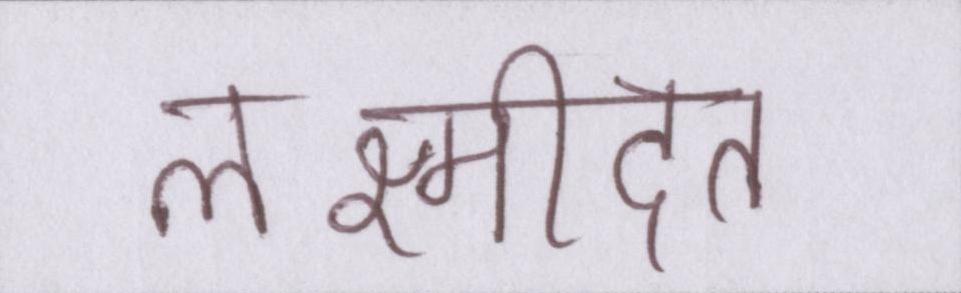 लक्ष्मीदत